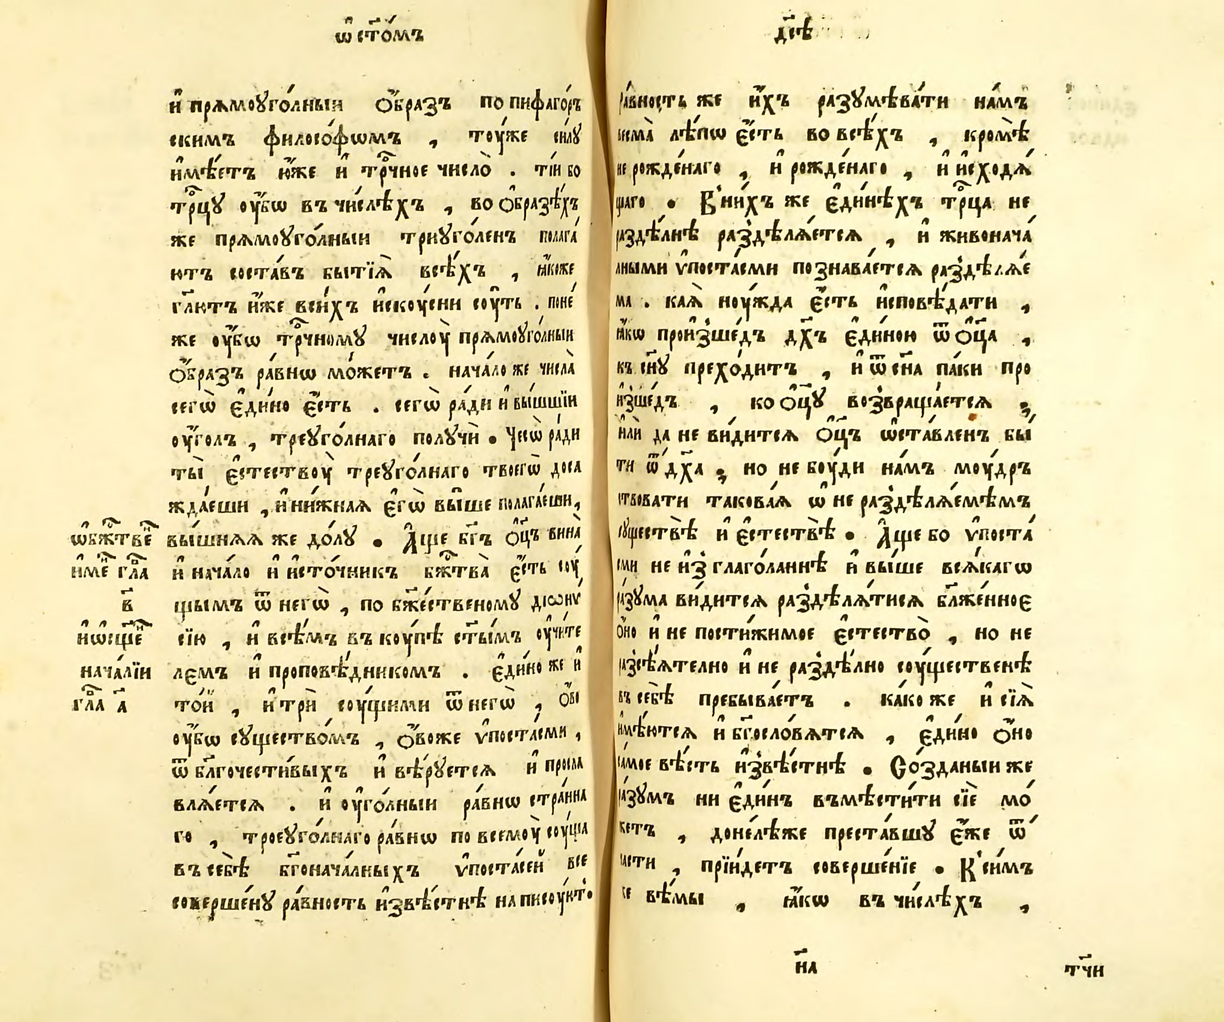 ѡ҆ ст҃о́мъ
и҆ прѧмоуго́лныи ѻ҆́бразъ по пифаго́р
скимъ филосо́фѡмъ , тоу́же си́лу
и҆мѣ́етъ ю҆́же и҆ тр҇о́чное число̀ . ті́и бо
тр҇о́цу оу҆́бѡ въ чи́слѣхъ , во ѻ҆́бразѣхъ
же прѧмоуго́лныи триуго́ленъ полага́
ютъ соста́въ бытїѧ̀ всѣ́хъ , ꙗ҆́коже
гл҃ютъ и҆̀же вси́хъ и҆скоу́сни соу́ть . поне́
же оу҆́бѡ тр҇о́чному числоу̀ прѧмоуго́лныи
ѻ҆́бразъ ра́внѡ мо́жетъ . нача́ло же числа̀
сегѡ̀ є҆ди́но є҆́сть . сегѡ̀ ра́ди и҆ вы́шшїи
оу҆́голъ , треуго́лнаго получѝ . Чесѡ̀ ра́ди
ты̀ є҆стествоу̀ треуго́лнаго твоегѡ̀ доса
жда́еши , и҆ ни́жнаѧ є҆гѡ̀ вы́ше полага́еши ,
вы́шнѧѧ же до́лу . А҆́ще бг҃ъ ѻ҆ц҃ъ вина̀
и҆ нача́ло и҆ и҆сто́чникъ бж҃тва̀ є҆́сть соу́
щымъ ѿ негѡ̀ , по бж҃е́ственому дїѡни́
сїю , и҆ всѣ́мъ въ коу́пѣ ст҃ы́мъ оу҆чи́те
лємъ и҆ проповѣ́дникомъ . є҆ди́но же и҆
то́и , и҆ трѝ соу́щими ѿ негѡ̀ , ѻ҆́во
оу҆́бѡ сꙋщество́мъ , ѻ҆́воже ѵ҆поста́сми ,
ѿ бл҃гочести́выхъ и҆ вѣ́руетсѧ и҆ просла
влѧ́етсѧ . и҆ оу҆го́лныи ра́внѡ стра́нна
го , троеуго́лнаго ра́внѡ по всемоу̀ соу́ща
въ себѣ̀ бг҃онача́лныхъ ѵ҆поста́сей все
соверше́ну ра́вность и҆звѣ́стнѣ написоу́ктъ
ѡ҆ бж҃твѣ
и҆ме гла
в҃
и҆ ѡ҆ сщ҃е
нача́лїи
гла а҃
дс҃ѣ
ра́вность же и҆́хъ разумѣва́ти на́мъ
весма̀ лѣ́по є҆́сть во всѣ́хъ , кро́мѣ
не рожде́наго , и҆ рожде́наго , и҆ и҆сходѧ́
щаго . В' ни́хъ же є҆ди́нѣхъ тр҇о́ца не
раздѣ́лнѣ раздѣлѧ́етсѧ , и҆ живонача́
лными ѵ҆поста́сми познава́етсѧ раздѣлѧ́е
ма . ка́ѧ ноу́жда є҆́сть и҆сповѣ́дати ,
ꙗ҆́кѡ произше́дъ дх҃ъ є҆ди́ною ѿ ѻ҆ц҃а̀ ,
къ сн҃у прехо́дитъ , и҆ ѿ сн҃а па́ки про
и҆зше́дъ , ко ѻ҆ц҃у̀ возвраща́етсѧ ;
и҆лѝ да не ви́дитсѧ ѻ҆ц҃ъ ѡ҆ста́вленъ бы́
ти ѿ дх҃а ; но не боу́ди на́мъ моу́др
ствовати такова́ѧ ѡ҆ не раздѣлѧ́емѣмъ
сꙋществѣ̀ и҆ є҆стествѣ̀ . А҆́ще бо ѵ҆поста́
сми не и҆зглаго́ланнѣ и҆ вы́ше всѧ́кагѡ
ра́зума ви́дитсѧ раздѣлѧ́тисѧ бл҃же́нное
ѻ҆́но и҆ не постижи́мое є҆стество̀ , но не
разсѣѧ́телно и҆ не раздѣ́лно соу́щественѣ
въ себѣ̀ пребыва́етъ . ка́ко же и҆ сїѧ̀
и҆мѣ́ютсѧ и҆ бг҃осло́вѧтсѧ , є҆ди́но ѻ҆́но
са́мое вѣ́сть и҆звѣ́стнѣ . Со́зданыи же
ра́зумъ ни є҆ди́нъ въмѣсти́ти сїѐ мо́
жетъ , донелѣ́же преста́вшу є҆́же ѿ
ча́сти , прїи́детъ соверше́нїе . К' си́мъ
же вѣ́мы , ꙗ҆́кѡ въ чи́слѣхъ ,
н҃а
тч҃и